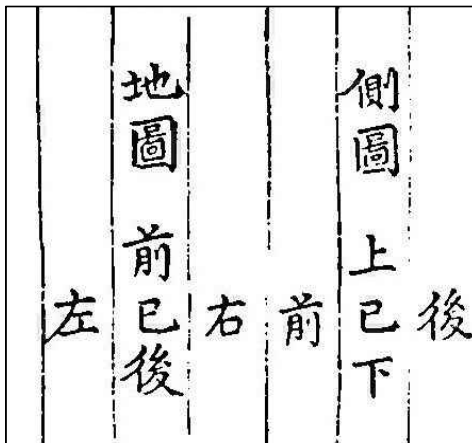 後
側圖 上已下
前
右
地圖 前已後
左